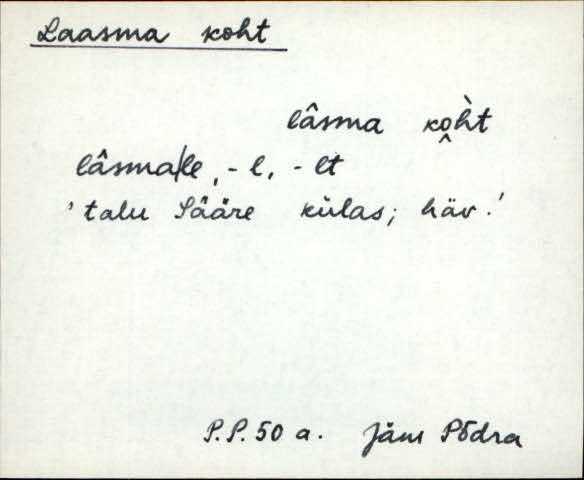 Laasma koht
lâsma kòht
lâsma|le, -l, -lt
'talu Sääre külas; häv.'
P.P. 50 a. Jäm Põdra